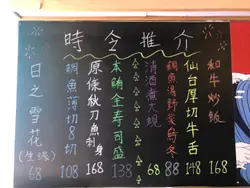 時令推介
和牛炒飯
168
仙台厚切牛舌
148
鯛魚湯野菜烏冬
88
清酒煮大蜆
68
本鮪全壽司盛
138
原條秋刀魚刺身
168
鯛魚薄切8切
108
日之雪花
(生蠔)
68